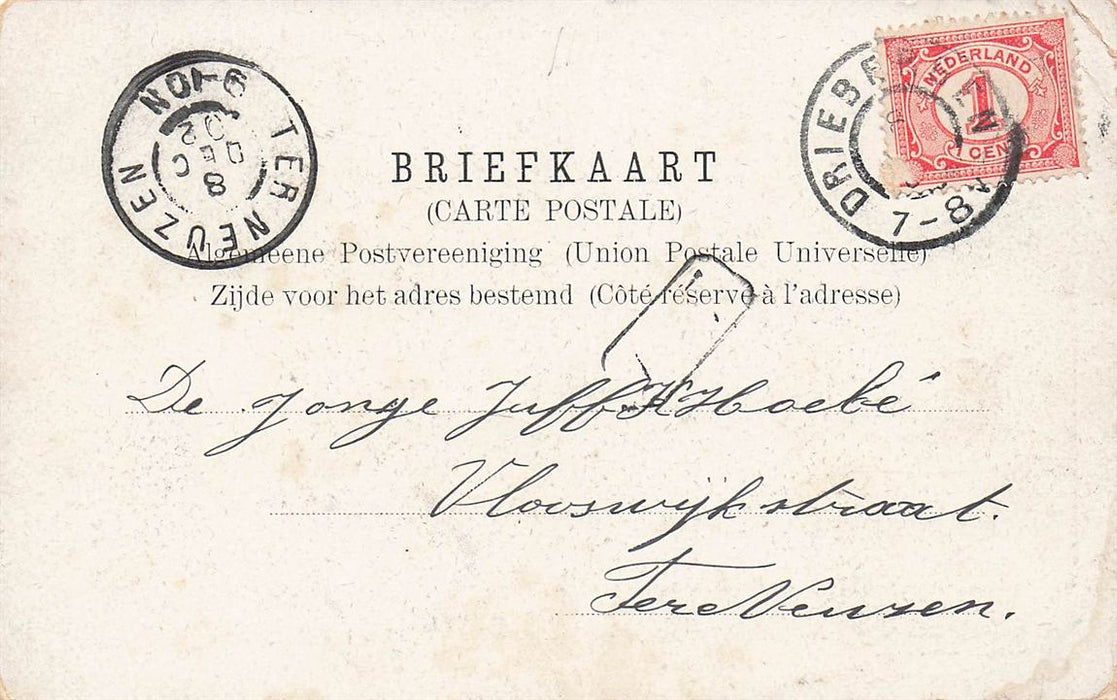 TER NEUZEN
8 DEC 02
9-10N
DRIEBERGEN
7-8N
NEDERLAND
1
CENT
BRIEFKAART
(CARTE POSTALE)
Algemeene Postvereeniging (Union Postale Universelle)
Zijde voor het adres bestemd (Côté réservé à l'adresse)
De Jonge Juff K Hoebé
Vlooswijkstraat.
Ter Neuzen.